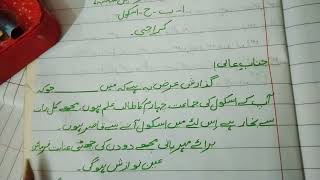 ا-ب-ج-اسکول
کراچی-
جنابِ عالی!
گذارش عرض ہے یہ کہ میں ______ جو کہ
آپ کے اسکول کی جماعت چہارم کا طالب علم ہوں۔ مجھے کل رات
سے بخار ہے اس لئے میں اسکول آنے سے قاصر ہوں۔
برائے مہربانی مجھے دو دن کی چھٹی عنایت فرمائی
عین نوازش ہوگی۔